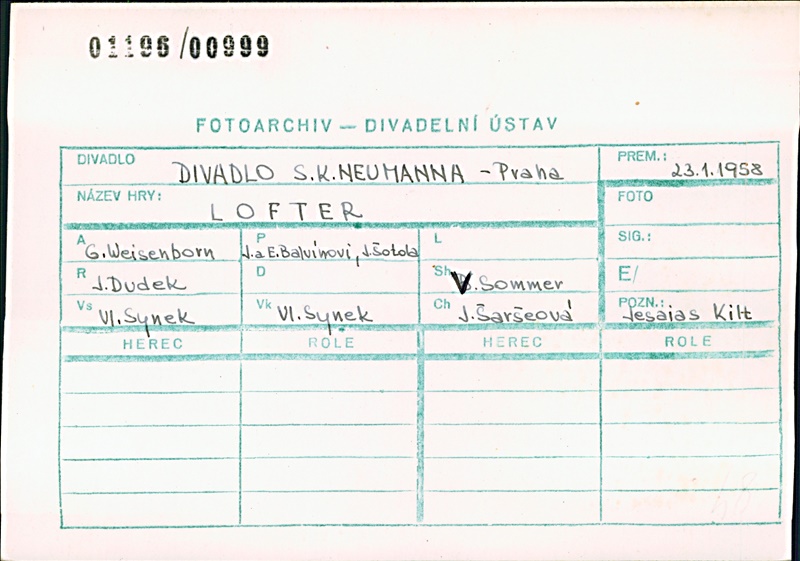 01196/00999
FOTOARCHIV — DIVADELNÍ ÚSTAV
DIVADLO DIVADLO S.K.NEUMANNA - Praha PREM.: 23.1.1958
NÁZEV HRY: LOFTER FOTO
A G.Weisenborn P J.a E.Balvínovi, J.Šotola L SIG.:
R J.Dudek D Sh V.Sommer E/
Vs Vl.Synek Vk Vl.Synek Ch J.Šaršeová POZN.: Jesaias Kilt
HEREC ROLE HEREC ROLE